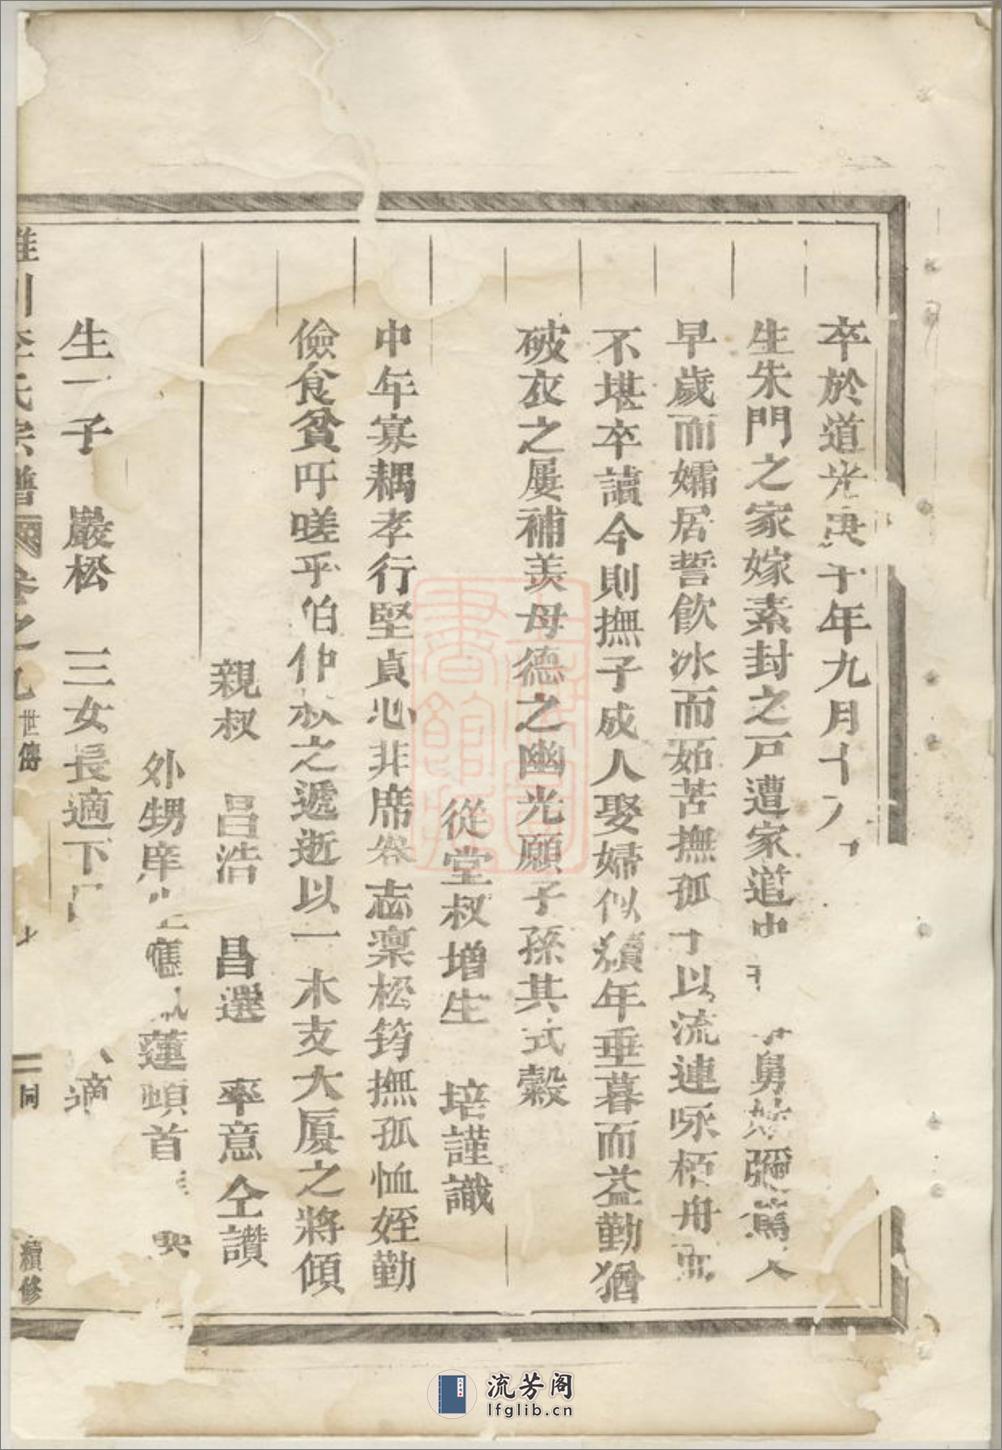 卒於道光庚子年九月十八
生朱門之家嫁素封之戸遭家道中 舅姑彌篤人
早歲而孀居誓飲冰而茹苦撫孤 以流連咏栢舟而
不堪卒讀今則撫子成人娶婦似續年垂暮而益勤猶
破衣之屢補羨母德之幽光願子孫其式榖
從堂叔增生 培謹識
中年寡耦孝行堅貞心非席卷志稟松筠撫孤恤姪勤
儉食貧吁嗟乎伯仲叔之遞逝以一木支大厦之將傾
親叔 昌浩 昌選 率意仝讃
外甥庠生 蓮頓首
生一子 巖松 三女長適下 適
李氏宗譜 卷之九 世傳 同 續修
流芳阁
lfglib.cn